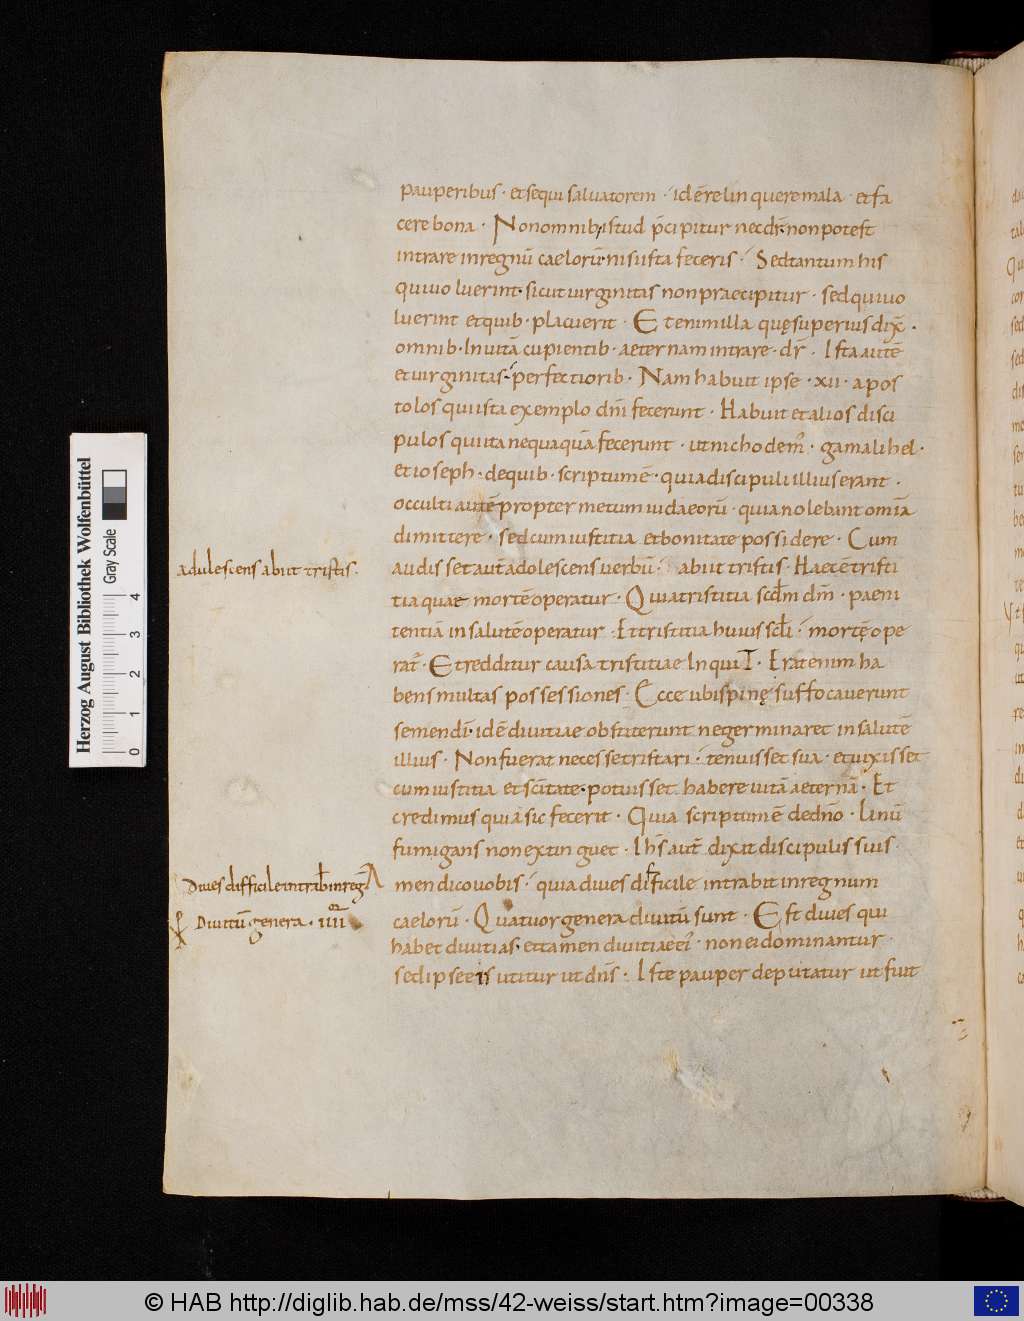 pauperibus · et sequi salvatorem · id ē relinquere mala · et fa
cere bona · Non omnib; istud p̄cipitur nec dr̄ non potest
intrare in regnū caelorū nisi ista feceris · Sed tantum his
qui voluerint · sicut virginitas non praecipitur · sed qui vo
luerint et quib · placuerit · Et enim illa quę superius dix̄ ·
omnib · In vitā cupientib · aeternam intrare · dr̄ · Ista autē
et virginitas · perfectiorib · Nam habuit ipse · xii · apos
tolos qui ista exemplo dn̄i fecerunt · Habuit et alios disci
pulos qui ita nequaquā fecerunt · ut nichodem᾽ · gamalihel ·
et ioseph · de quib · scriptum ē · quia discipuli illius erant ·
occulti autē propter metum iudaeorū · quia nolebant omīa
dimittere · sed cum iustitia et bonitate possidere · Cum
audisset aut̄ adolescens verbū · abiit tristis · Haec ē tristi
tia quae mortē operatur · Quia tristitia scd̄m dm̄ · paeni
tentiā in salutē operatur · Et tristitia huius scl̄i · mortę ope
rat᾽ · Et redditur causa tristitiae Inquit · Erat enim ha
bens multas possessiones · Ecce ubi spinę suffocaverunt
semen dī · idē divitiae obstiterunt ne germinaret in salutē
illius · Non fuerat necesse tristari · tenuisset sua · et vixisset
cum iustitia et scītate · potuisset habere vitā aeternā · Et
credimus quiā sic fecerit · Quia scriptum ē de dn̄o · Linū
fumigans non extinguet · Ihs̄ aut̄ dixit discipulis suis
Amen dico vobis · quia dives difficile intrabit in regnum
caelorū · Quatuor genera divitū sunt · Est dives qui
habet divitias · et tamen divitiae ei᾽ · non ei dominantur ·
sed ipse eis utitur ut dn̄s · Iste pauper deputatur ut fuit
adulescens abiit tristis ·
Dives difficile intrab̄ in regn̄
Divitū genera · iiii
Herzog August Bibliothek Wolfenbüttel
Gray Scale
0 1 2 3 4
© HAB http://diglib.hab.de/mss/42-weiss/start.htm?image=00338